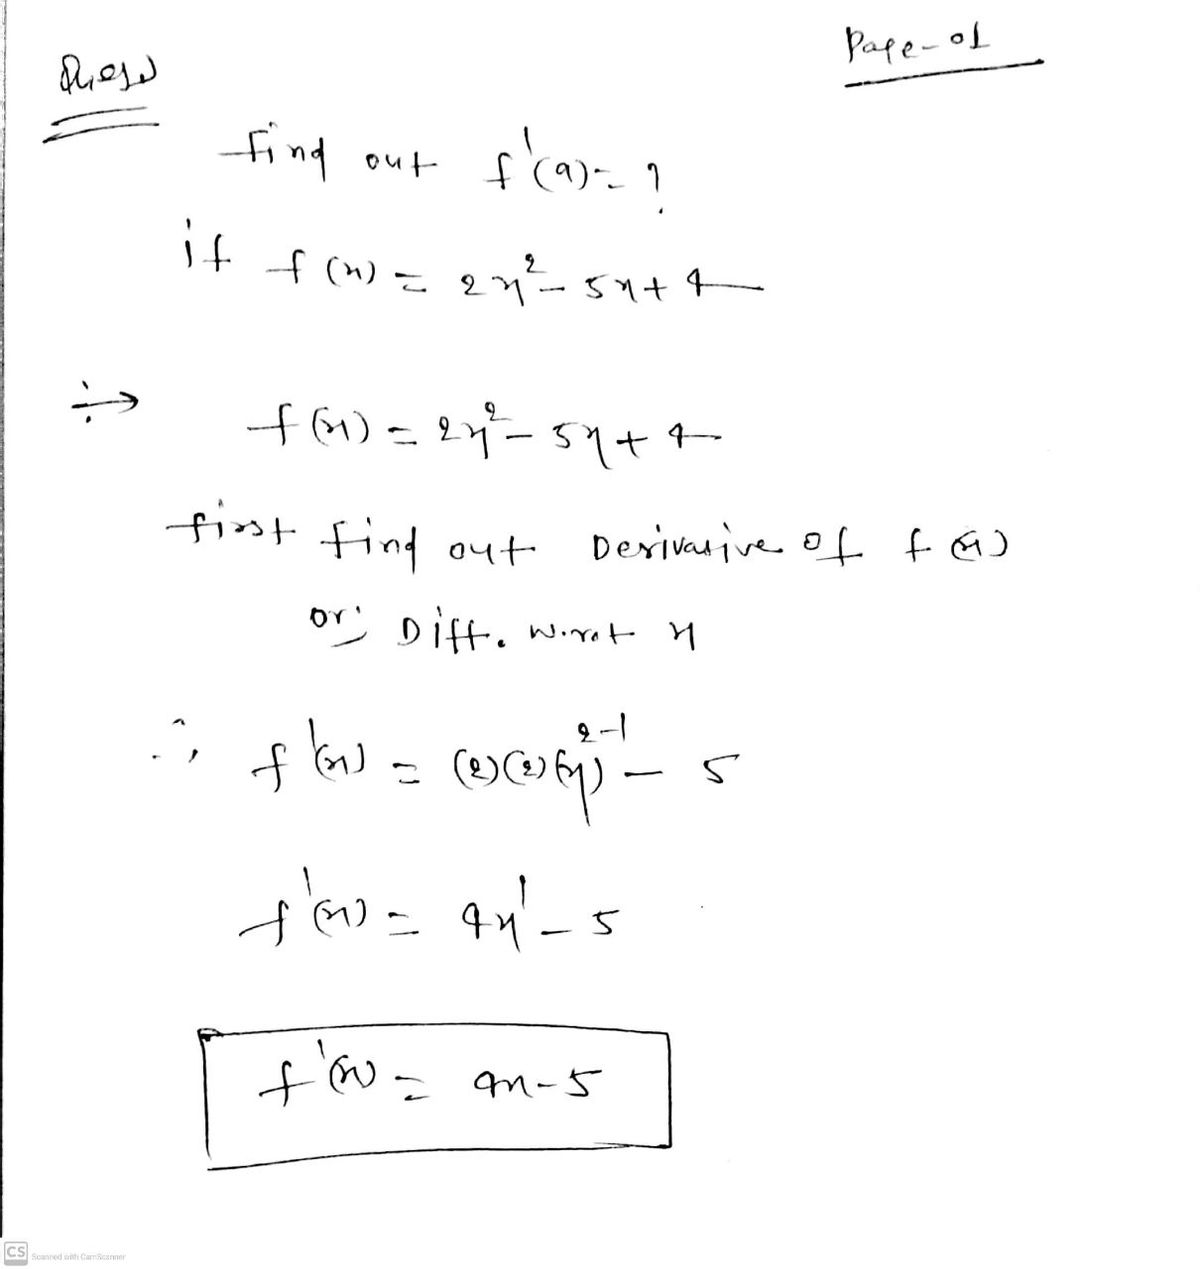 Page-01
Ques
find out f'(a)=?
if f(x) = 2x²-5x+4
÷→ f(x) = 2x²-5x+4
first find out Derivative of f(x)
or: Diff. w.r.t x
∴ f'(x) = (2)(2)(x)²⁻¹ - 5
f'(x) = 4x¹-5
f'(x) = 4x-5
CS Scanned with CamScanner